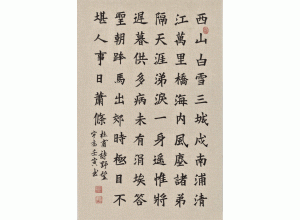 西山白雪三城戍南浦清
江萬里橋海内風塵諸弟
隔天涯涕淚一身遥惟將
遲暮供多病未有涓埃答
聖朝跨馬出郊時極目不
堪人事日蕭條
杜甫詩野望